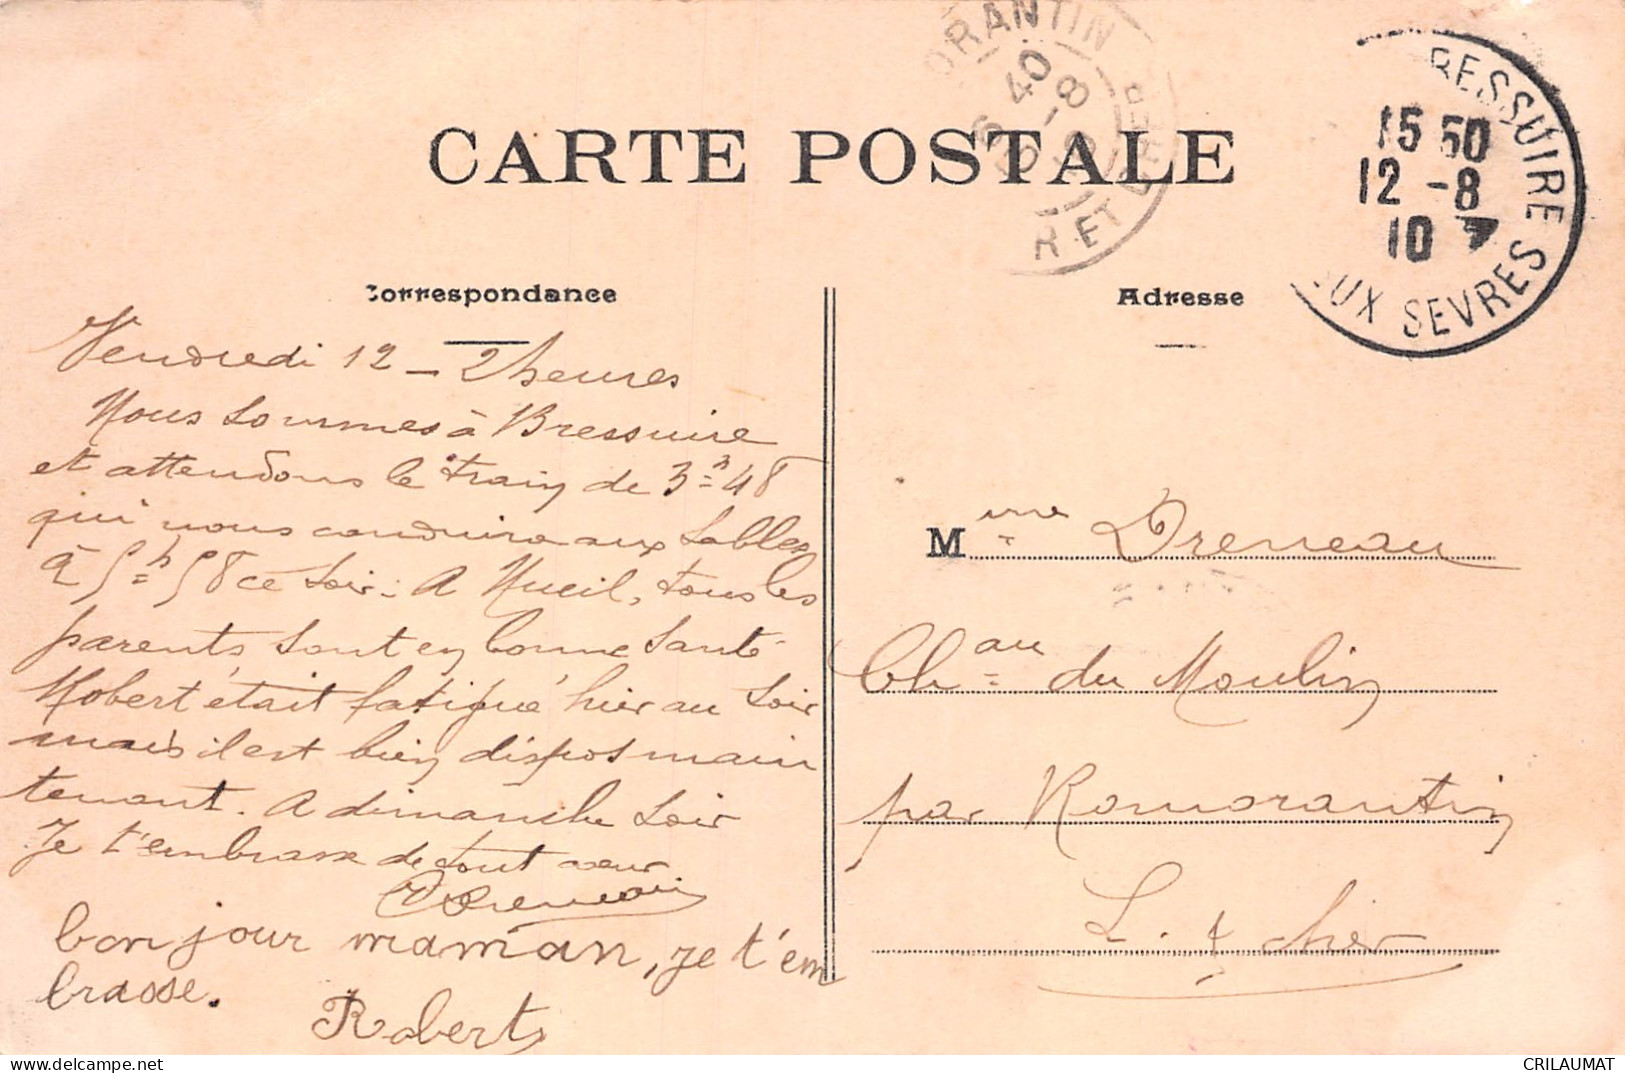 CARTE POSTALE
ORANTIN
40
8
R ET CHER
RESSUIRE
15 50
12 -8
10
UX SEVRES
Correspondance
Adresse
Vendredi 12 - 2 heures
Nous sommes à Bressuire
et attendons le train de 3h 48
qui nous conduira aux Sables
à 5h 58 ce soir. A Nueil, tous les
parents sont en bonne santé
Robert était fatigué hier au soir
mais il est bien dispos main
tenant. A dimanche soir
Je t'embrasse de tout cœur
Dreneau
bonjour maman, je t'em
brasse.
Robert
Mme Dreneau
Chau du Moulin
par Romorantin
L. & Cher
delcampe.net
CRILAUMAT